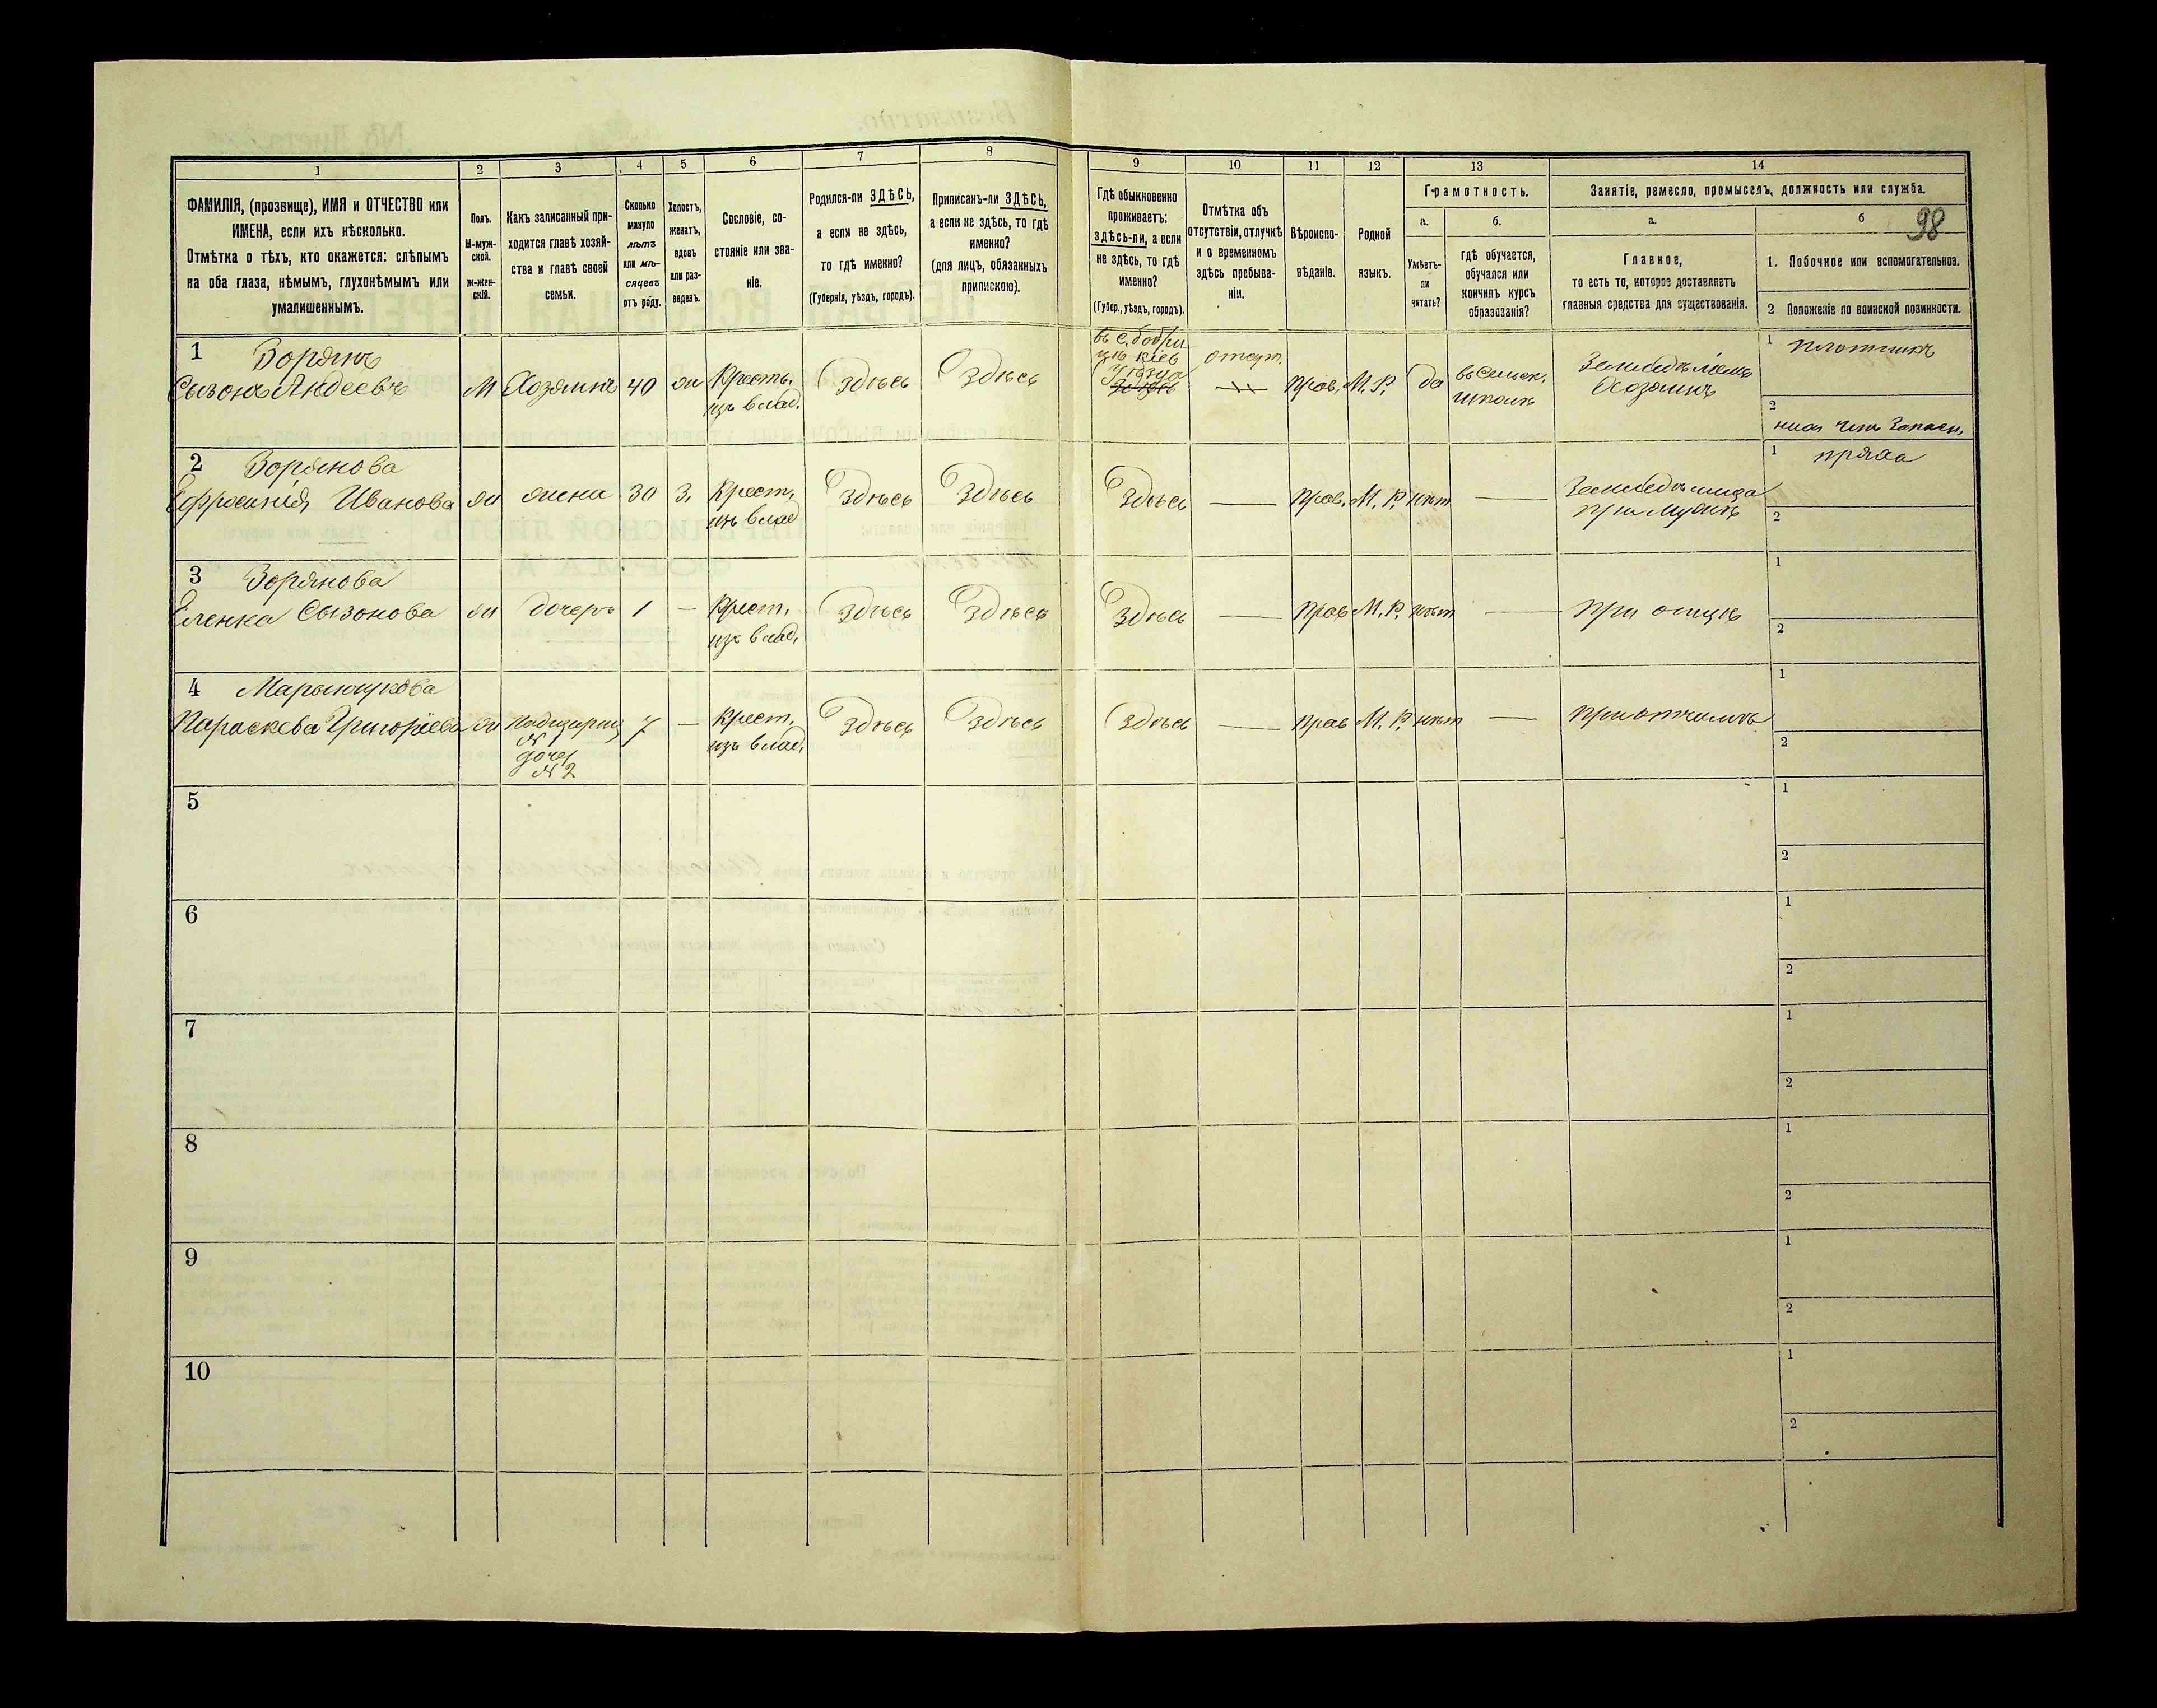 98
1
2
3
4
5
6
7
8
9
10
11
12
13
14
ФАМИЛІЯ, (прозвище), ИМЯ и ОТЧЕСТВО или
ИМЕНА, если ихъ нѣсколько.
Отмѣтка о тѣхъ, кто окажется: слѣпымъ
на оба глаза, нѣмымъ, глухонѣмымъ или
умалишеннымъ.
Полъ.
М-муж-
ской.
Ж-жен-
скій.
Какъ записанный при-
ходится главѣ хозяй-
ства и главѣ своей
семьи.
Сколько
минуло
лѣтъ
или мѣ-
сяцевъ
отъ роду.
Холостъ,
женатъ,
вдовъ
или раз-
веденъ.
Сословіе, со-
стояніе или зва-
ніе.
Родился-ли ЗДѢСЬ,
а если не здѣсь,
то гдѣ именно?
(Губернія, уѣздъ, городъ).
Приписанъ-ли ЗДѢСЬ,
а если не здѣсь, то гдѣ
именно?
(для лицъ, обязанныхъ
припискою).
Гдѣ обыкновенно
проживаетъ:
здѣсь-ли, а если
не здѣсь, то гдѣ
именно?
(Губер., уѣздъ, городъ).
Отмѣтка объ
отсутствіи, отлучкѣ
и о временномъ
здѣсь пребыва-
ніи.
Вѣроиспо-
вѣданіе.
Родной
языкъ.
Грамотность.
а.
б.
Умѣетъ-
ли
читать?
гдѣ обучается,
обучался или
кончилъ курсъ
образованія?
Занятіе, ремесло, промыселъ, должность или служба.
а.
б
Главное,
то есть то, которое доставляетъ
главныя средства для существованія.
1. Побочное или вспомогательное.
2 Положеніе по воинской повинности.
1 Зорянъ
Сызонъ Андеевъ
М
Хозяинъ
40
жи
Кресть.
изъ влад.
Здѣсь
Здѣсь
въ С. Бобри
цѣ Кіев
уѣзда
Здѣсь
отсут.
Прав.
М. Р.
да
въ сельск.
школѣ
Земледѣліемъ
Хозяинъ
1 плотникъ
2
2 Зорянова
Ефросинія Иванова
жи
жена
30
з.
Крест.
изъ влад
Здѣсь
Здѣсь
Здѣсь
Прав.
М. Р.
нѣт
Земледѣлица
при мужѣ
1 пряха
2
3 Зорянова
Еленка Сызонова
жи
дочерь
1
Крест.
изъ влад.
Здѣсь
Здѣсь
Здѣсь
Прав
М. Р.
нѣт
При отцѣ
1
2
4 Марынчукова
Параскева Григоріева
жи
Падчериц
№ 1
дочер
№ 2
7
Крест.
изъ влад.
Здѣсь
Здѣсь
Здѣсь
Прав
М. Р.
нѣт
При отчимѣ
1
2
5
1
2
6
1
2
7
1
2
8
1
2
9
1
2
10
1
2